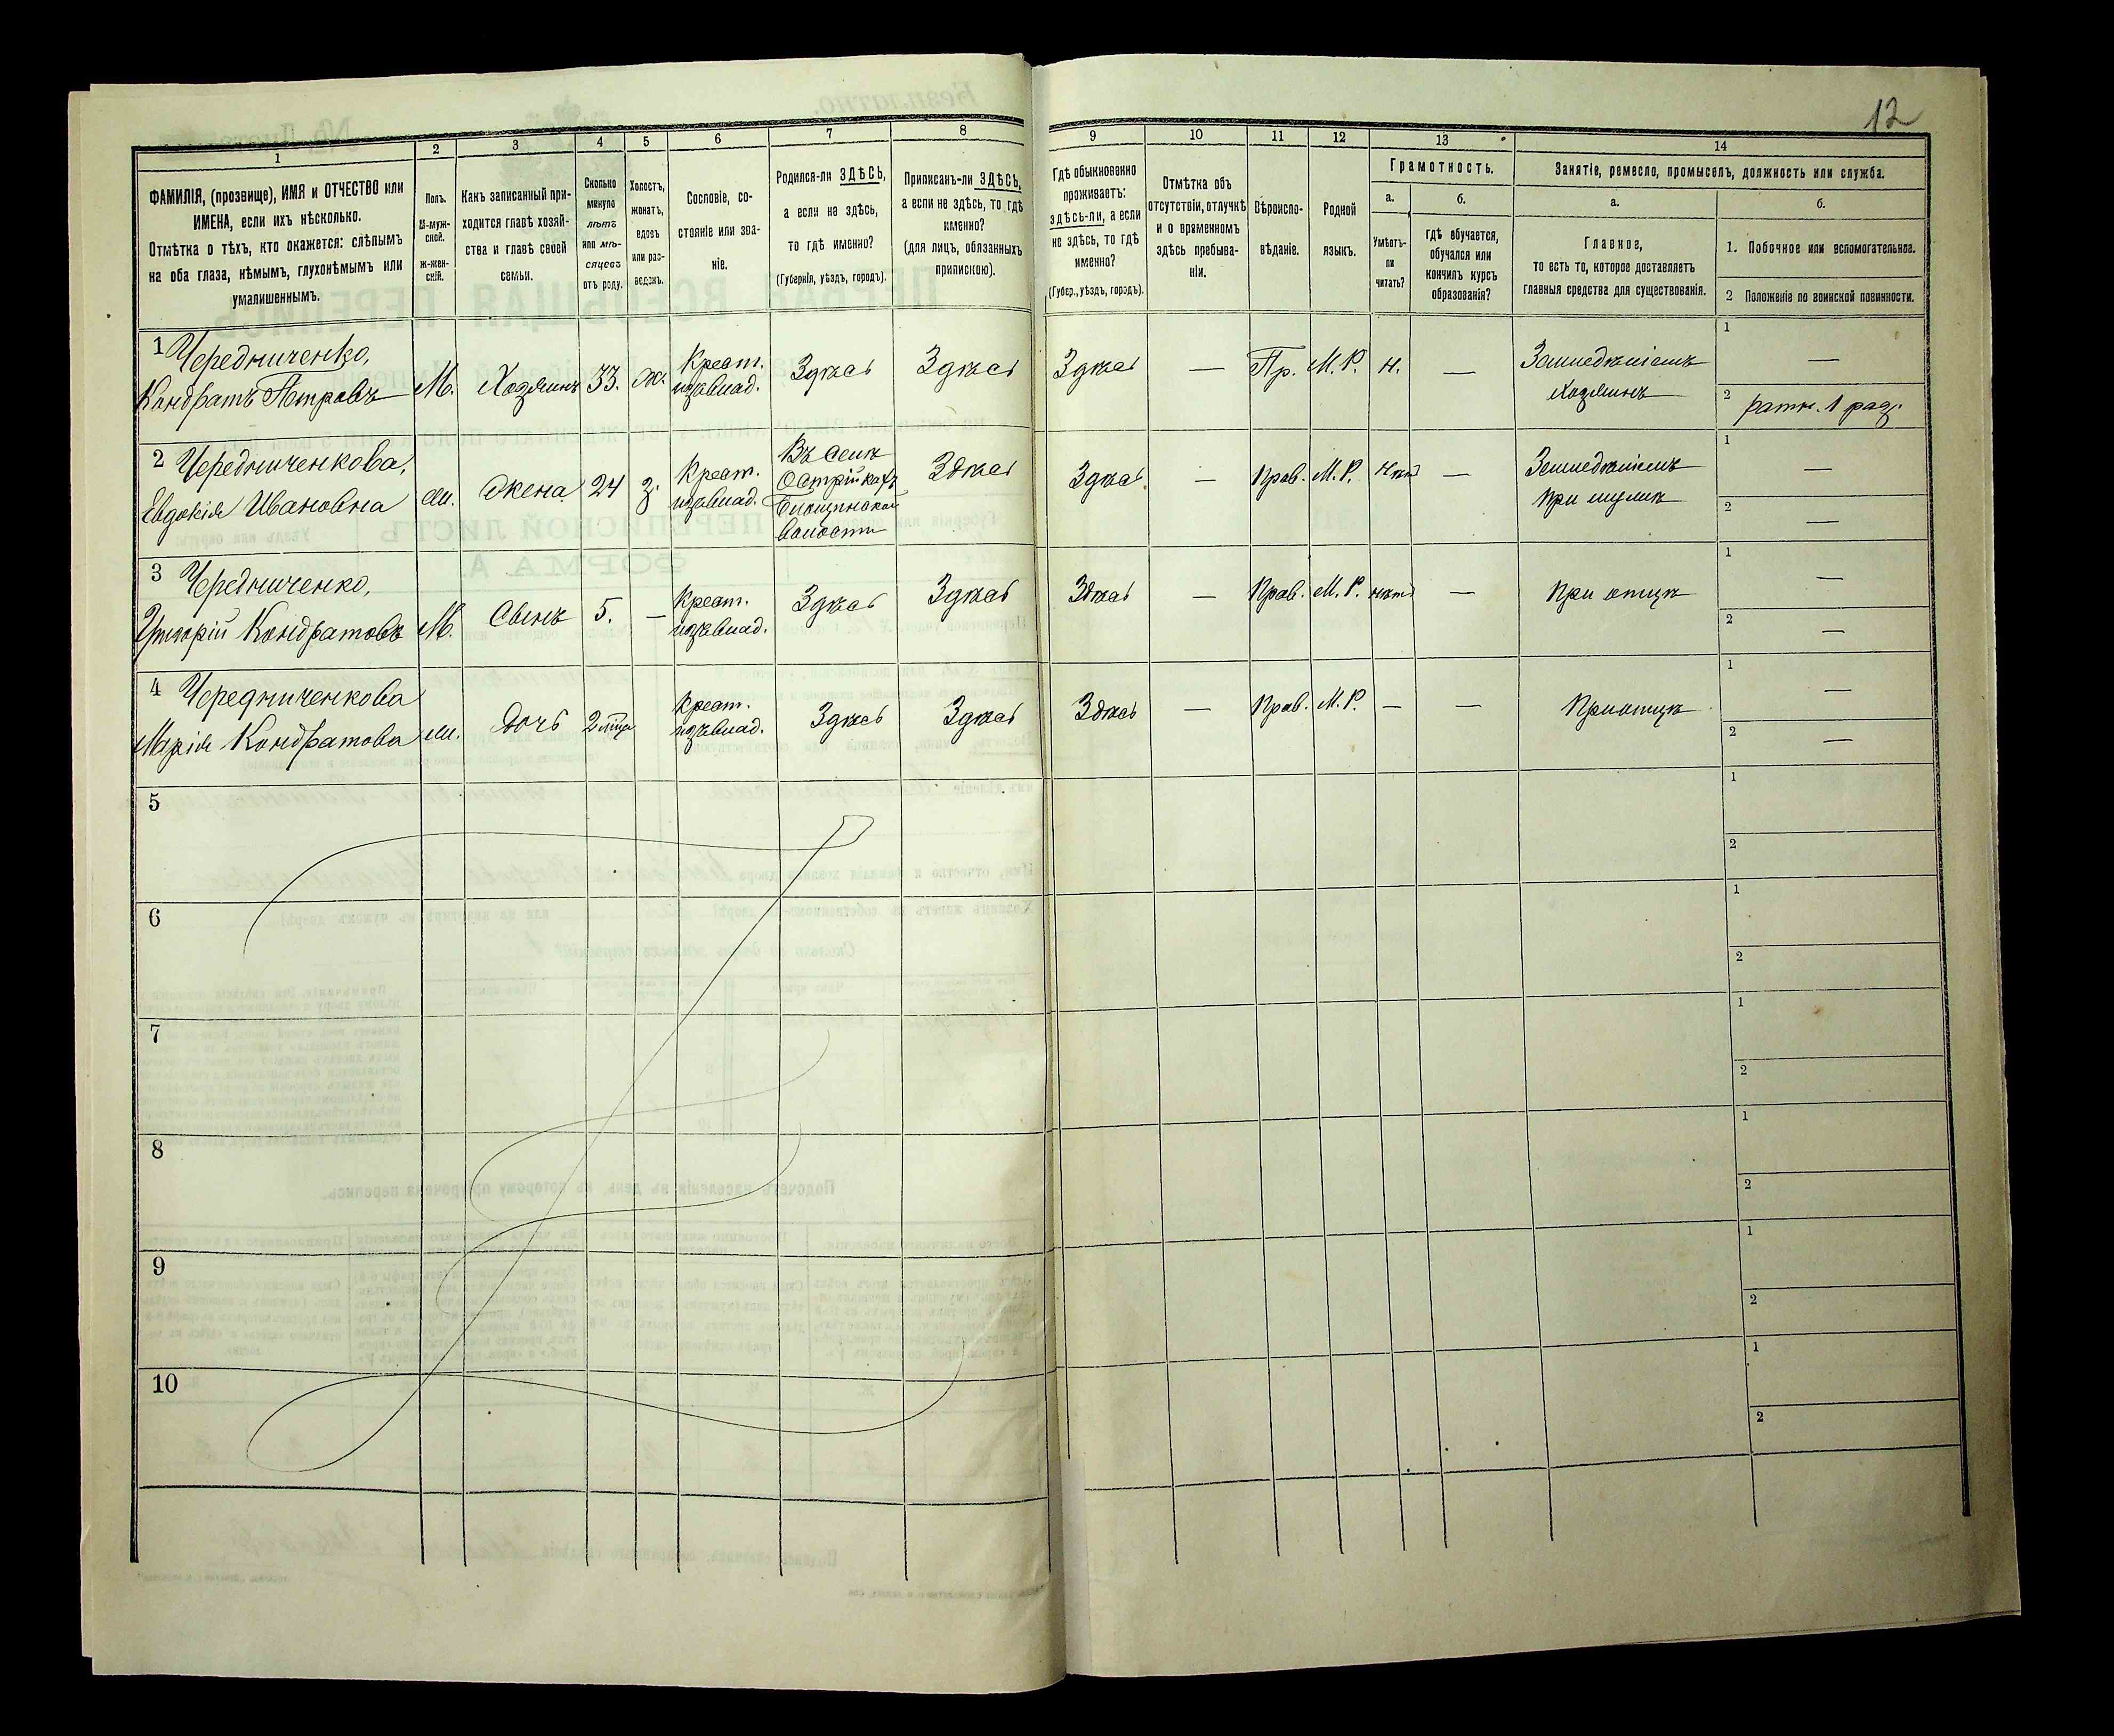 12
1
2
3
4
5
6
7
8
9
10
11
12
13
14
ФАМИЛІЯ, (прозвище), ИМЯ и ОТЧЕСТВО или
ИМЕНА, если ихъ нѣсколько.
Отмѣтка о тѣхъ, кто окажется: слѣпымъ
на оба глаза, нѣмымъ, глухонѣмымъ или
умалишеннымъ.
Полъ.
М-муж-
ской.
ж-жен-
скій.
Какъ записанный при-
ходится главѣ хозяй-
ства и главѣ своей
семьи.
Сколько
минуло
лѣтъ
или мѣ-
сяцевъ
отъ роду.
Холостъ,
женатъ,
вдовъ
или раз-
веденъ.
Сословіе, со-
стояніе или зва-
ніе.
Родился-ли ЗДѢСЬ,
а если не здѣсь,
то гдѣ именно?
(Губернія, уѣздъ, городъ).
Приписанъ-ли ЗДѢСЬ,
а если не здѣсь, то гдѣ
именно?
(для лицъ, обязанныхъ
припискою).
Гдѣ обыкновенно
проживаетъ:
здѣсь-ли, а если
не здѣсь, то гдѣ
именно?
(Губер., уѣздъ, городъ).
Отмѣтка объ
отсутствіи, отлучкѣ
и о временномъ
здѣсь пребыва-
ніи.
Вѣроиспо-
вѣданіе.
Родной
языкъ.
Грамотность.
а.
Умѣетъ-
ли
читать?
б.
гдѣ обучается,
обучался или
кончилъ курсъ
образованія?
Занятіе, ремесло, промыселъ, должность или служба.
а.
Главное,
то есть то, которое доставляетъ
главныя средства для существованія.
б.
1. Побочное или вспомогательное.
2 Положеніе по воинской повинности.
1 Чередниченко,
Кондратъ Петровъ
М.
Хозяинъ
33.
ж.
Крест.
изъ влад.
Здѣсь
Здѣсь
Здѣсь
—
Пр.
М. Р.
н.
—
Земледѣліемъ
хозяинъ
1 —
2 ратн. 1 раз.
2 Чередниченкова,
Евдокія Ивановна
ж.
Жена
24
з.
Крест.
изъ влад.
Въ селѣ
Острійкахъ
волости
Здѣсь
Здѣсь
—
Прав.
М. Р.
нѣтъ
—
Земледѣліемъ
при мужѣ
1 —
2 —
3 Чередниченко,
Григорій Кондратовъ
М.
Сынъ
5.
—
Крест.
изъ влад.
Здѣсь
Здѣсь
Здѣсь
—
Прав.
М. Р.
нѣтъ
—
При отцѣ
1 —
2 —
4 Чередниченкова
Марія Кондратова
ж.
Дочь
Крест.
изъ влад.
Здѣсь
Здѣсь
Здѣсь
—
Прав.
М. Р.
—
—
При отцѣ
1 —
2 —
5
1
2
6
1
2
7
1
2
8
1
2
9
1
2
10
1
2